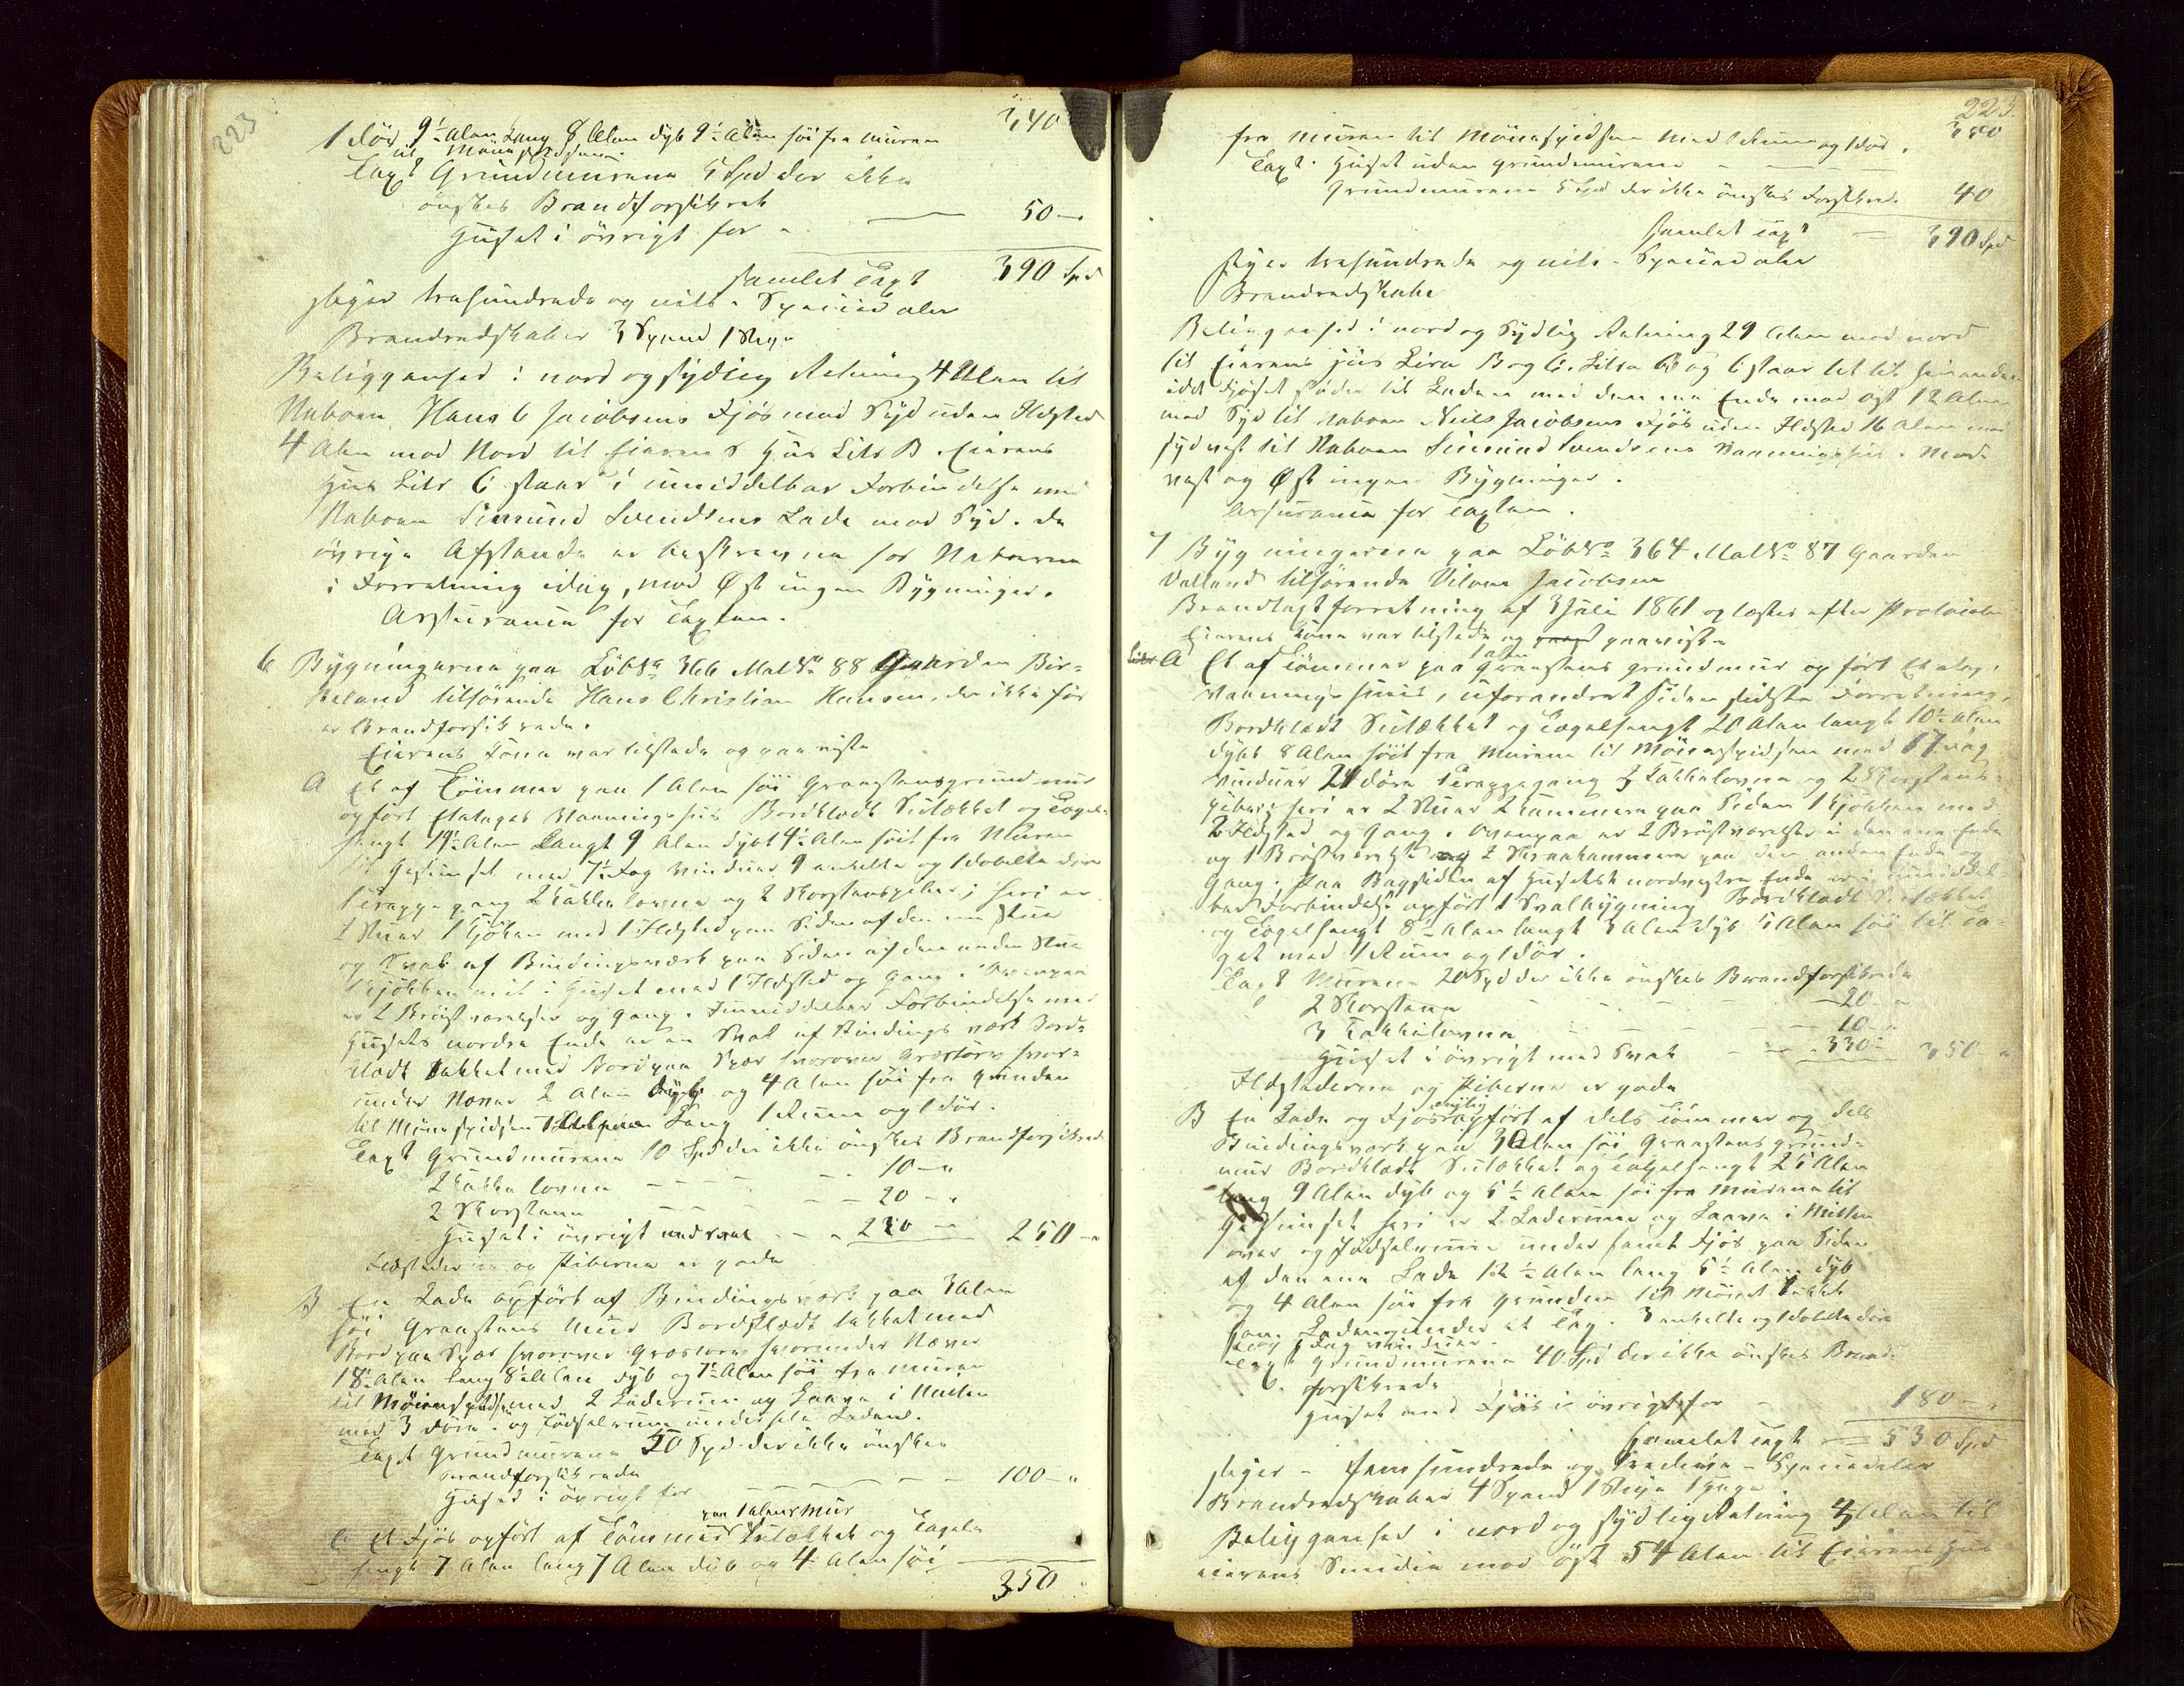 223
340
1 Dör 9½ Alen Lang 8 Alen dyb 9½ Alen höi fra Muren
til Mönespidsen.
Taxt Grundmurene 5 Spd der ikke
önskes Brandforsikret
Huset i övrigt for " — 50 — "
Samlet Taxt 390 Spd
siger trehundrede og niti - Speciedaler
Brandredskaber 3 Spand 1 Stige
Beliggenhed i nord og sydlig Retning 4 Alen til
Naboen Hans C Jacobsens Fjös mod Syd uden Ildsted
4 Alen mod Nord til Eierens Huus Litr B. Eierens
Huus Litr C staar i umiddelbar Forbindelse med
Naboen Simund Svendsens Lade mod Syd. De
övrige Afstande er beskrevne hos Naboerne
i Forretning idag, mod Øst ingen Bygninger.
Assurance for Taxten.
6 Bygningerne paa LöbNo 366 MatNo 88 Gaarden Bir-
keland tilhörende Hans Christian Hansen, der ikke för
er Brandforsikrede.
Eierens Kone var tilstede og paaviste
A Et af Tömmer paa 1 Alen höi Graastensgrundmur
opfört Etatages Vaaningshuus Bordklædt Sutækket og Tagel-
hengt 19½ Alen Langt 9 Alen dybt 4½ Alen höit fra Muren
til Gesimset med 7½ Fag Vinduer 9 enkelte og 1 dobelte Döre
1 Trappegang 2 Kakkelovne og 2 Skorstenspiber; heri er
2 Stuer 1 Kjöken med 1 Ildsted paa Siden af den ene Stue
og Sval af Bindingsværk paa Siden af den anden Stue
Kjökken mit i Huset med 1 Ildsted og Gang. Ovenpaa
er 2 Bröstværelser og Gang. I umiddelbar Forbindelse med
Husets nordre Ende er en Sval af Bindingsværk Bord-
klædt tækket med Bord paa Spær hvorover Græstörv hvor-
under Næver 2 Alen dyb og 4 Alen höi fra Grunden
til Mönespidsen Lang 1 Rum og 1 Dör.
Taxt Grundmurene 10 Spd der ikke önskes Brandforsikrede
2 Kakkelovne - - - - 10 — "
2 Skorstene - - - - 20 — "
Huset i övrigt med Sval - - " 220 — " 250 — "
Ildstederne og Piberne er gode
B En Lade opfört af Bindingsværk paa 3 Alen
höi Graastens Muur Bordklædt tækket med
Bord paa Spær hvorover Græstörv hvorunder Næver
18½ Alen Lang 8½ Alen dyb og 7½ Alen höi fra Muren
til Mönespidsen med 2 Laderum og Laave i Midten
med 3 Döre. og Födselrum under hele Laden.
Taxt Grundmurene 50 Spd der ikke önskes
Brandforsikrede
Huset i övrigt for — — — — 100 — "
C Et Fjös opfört af Tömmer paa 1 Alens Mur Sutækket og Tagel-
hengt 7 Alen lang 7 Alen dyb og 4 Alen höi
350 "
223.
350
fra Muren til Mönespidsen med 1 Rum og 1 Dör.
Taxt. Huset uden Grundmurene - - - -
Grundmurene 5 Spd der ikke önskes Forsikrede 40
Samlet Taxt — 390 Spd
siger trehundrede og niti - Speciedaler
Brandredskabe
Beliggenhed i nord og Sydlig Retning 29 Alen mod nord
til Eierens Huus Litra B og C. Litra B og C staar tet til hinanden
idet Fjöset stöder til Laden med den ene Ende mod Øst 12 Alen
mod Syd til Naboen Niels Jacobsens Fjös uden Ildsted 16 Alen mod
sydvest til Naboen Simund Svendsens Vaaningshuus. Mod
vest og Øst ingen Bygninger.
Assurance for Taxten.
7 Bygningerne paa LöbNo 364 MatNo 87 Gaarden
Valland tilhörende Vilom Jacobsen
Brandtaxtforretning af 3 Juli 1861 oplæstes efter Protocollen
Eierens Kone var tilstede og paaviste
Litr A Et af Tömmer paa 1 Alen Graastens Grundmur opfört Etatag.
Vaaningshuus, uforandret siden sidste Forretning,
Bordklædt Sutækket og Tagelhengt 20 Alen langt 10½ Alen
dybt 8 Alen höit fra Muren til Mönespidsen med 17 Fag
Vinduer 21 Döre 1 Trappegang 3 Kakkelovne og 2 Skorstens-
piber; heri er 2 Stuer 2 Kammere paa Siden 1 Kjökken med
2 Ildsted og Gang. Ovenpaa er 2 Bröstværelser i den ene Ende
og 1 Bröstværelse og 2 Skraakammere paa den anden Ende og
Gang. Paa Bagsiden af Husets nordvestre Ende er i umiddel-
bar Forbindelse opfört 1 Svalbygning Bordklædt Sutækket
og Tagelhengt 8½ Alen langt 3 Alen dyb 5 Alen höi til Ta-
get med 1 Rum og 1 Dör.
Taxt Murene 20 Spd der ikke önskes Brandforsikrede
2 Skorstene - - - - — 20 — "
3 Kakkelovne - - - - — 10 — "
Huset i övrigt med Sval - - 330 — 350 — "
Ildstederne og Piberne er gode
B En Lade og Fjös nylig opfört af dels Tömmer og dels
Bindingsværk paa 3 Alen höi Graastens Grund-
mur Bordklædt Sutækket og Tagelhengt 25 Alen
lang 9 Alen dyb og 5½ Alen höi fra Murene til
Gesimset heri er 2 Laderum og Laave i Mitten
over og Födselrum under samt Fjös paa Siden
af den ene Lade 12½ Alen lang 5½ Alen dyb
og 4 Alen höi fra Grunden til Mönet tækket
som Laden under et Tag. 3 enkelte og 1 dobelte Döre
og 1 Fag Vinduer.
Taxt Grundmurene 40 Spd der ikke önskes Brand-
forsikrede
Huset med Fjös i övrigt for - 180 — "
Samlet Taxt — 530 Spd
siger - Femhundrede og tredive - Speciedaler
Brandredskaber 4 Spand 1 Stige 1 Hage.
Beliggenhed i nord og sydlig Retning Alen til
eierens Smidie mod öst 54 Alen til Eierens Huus